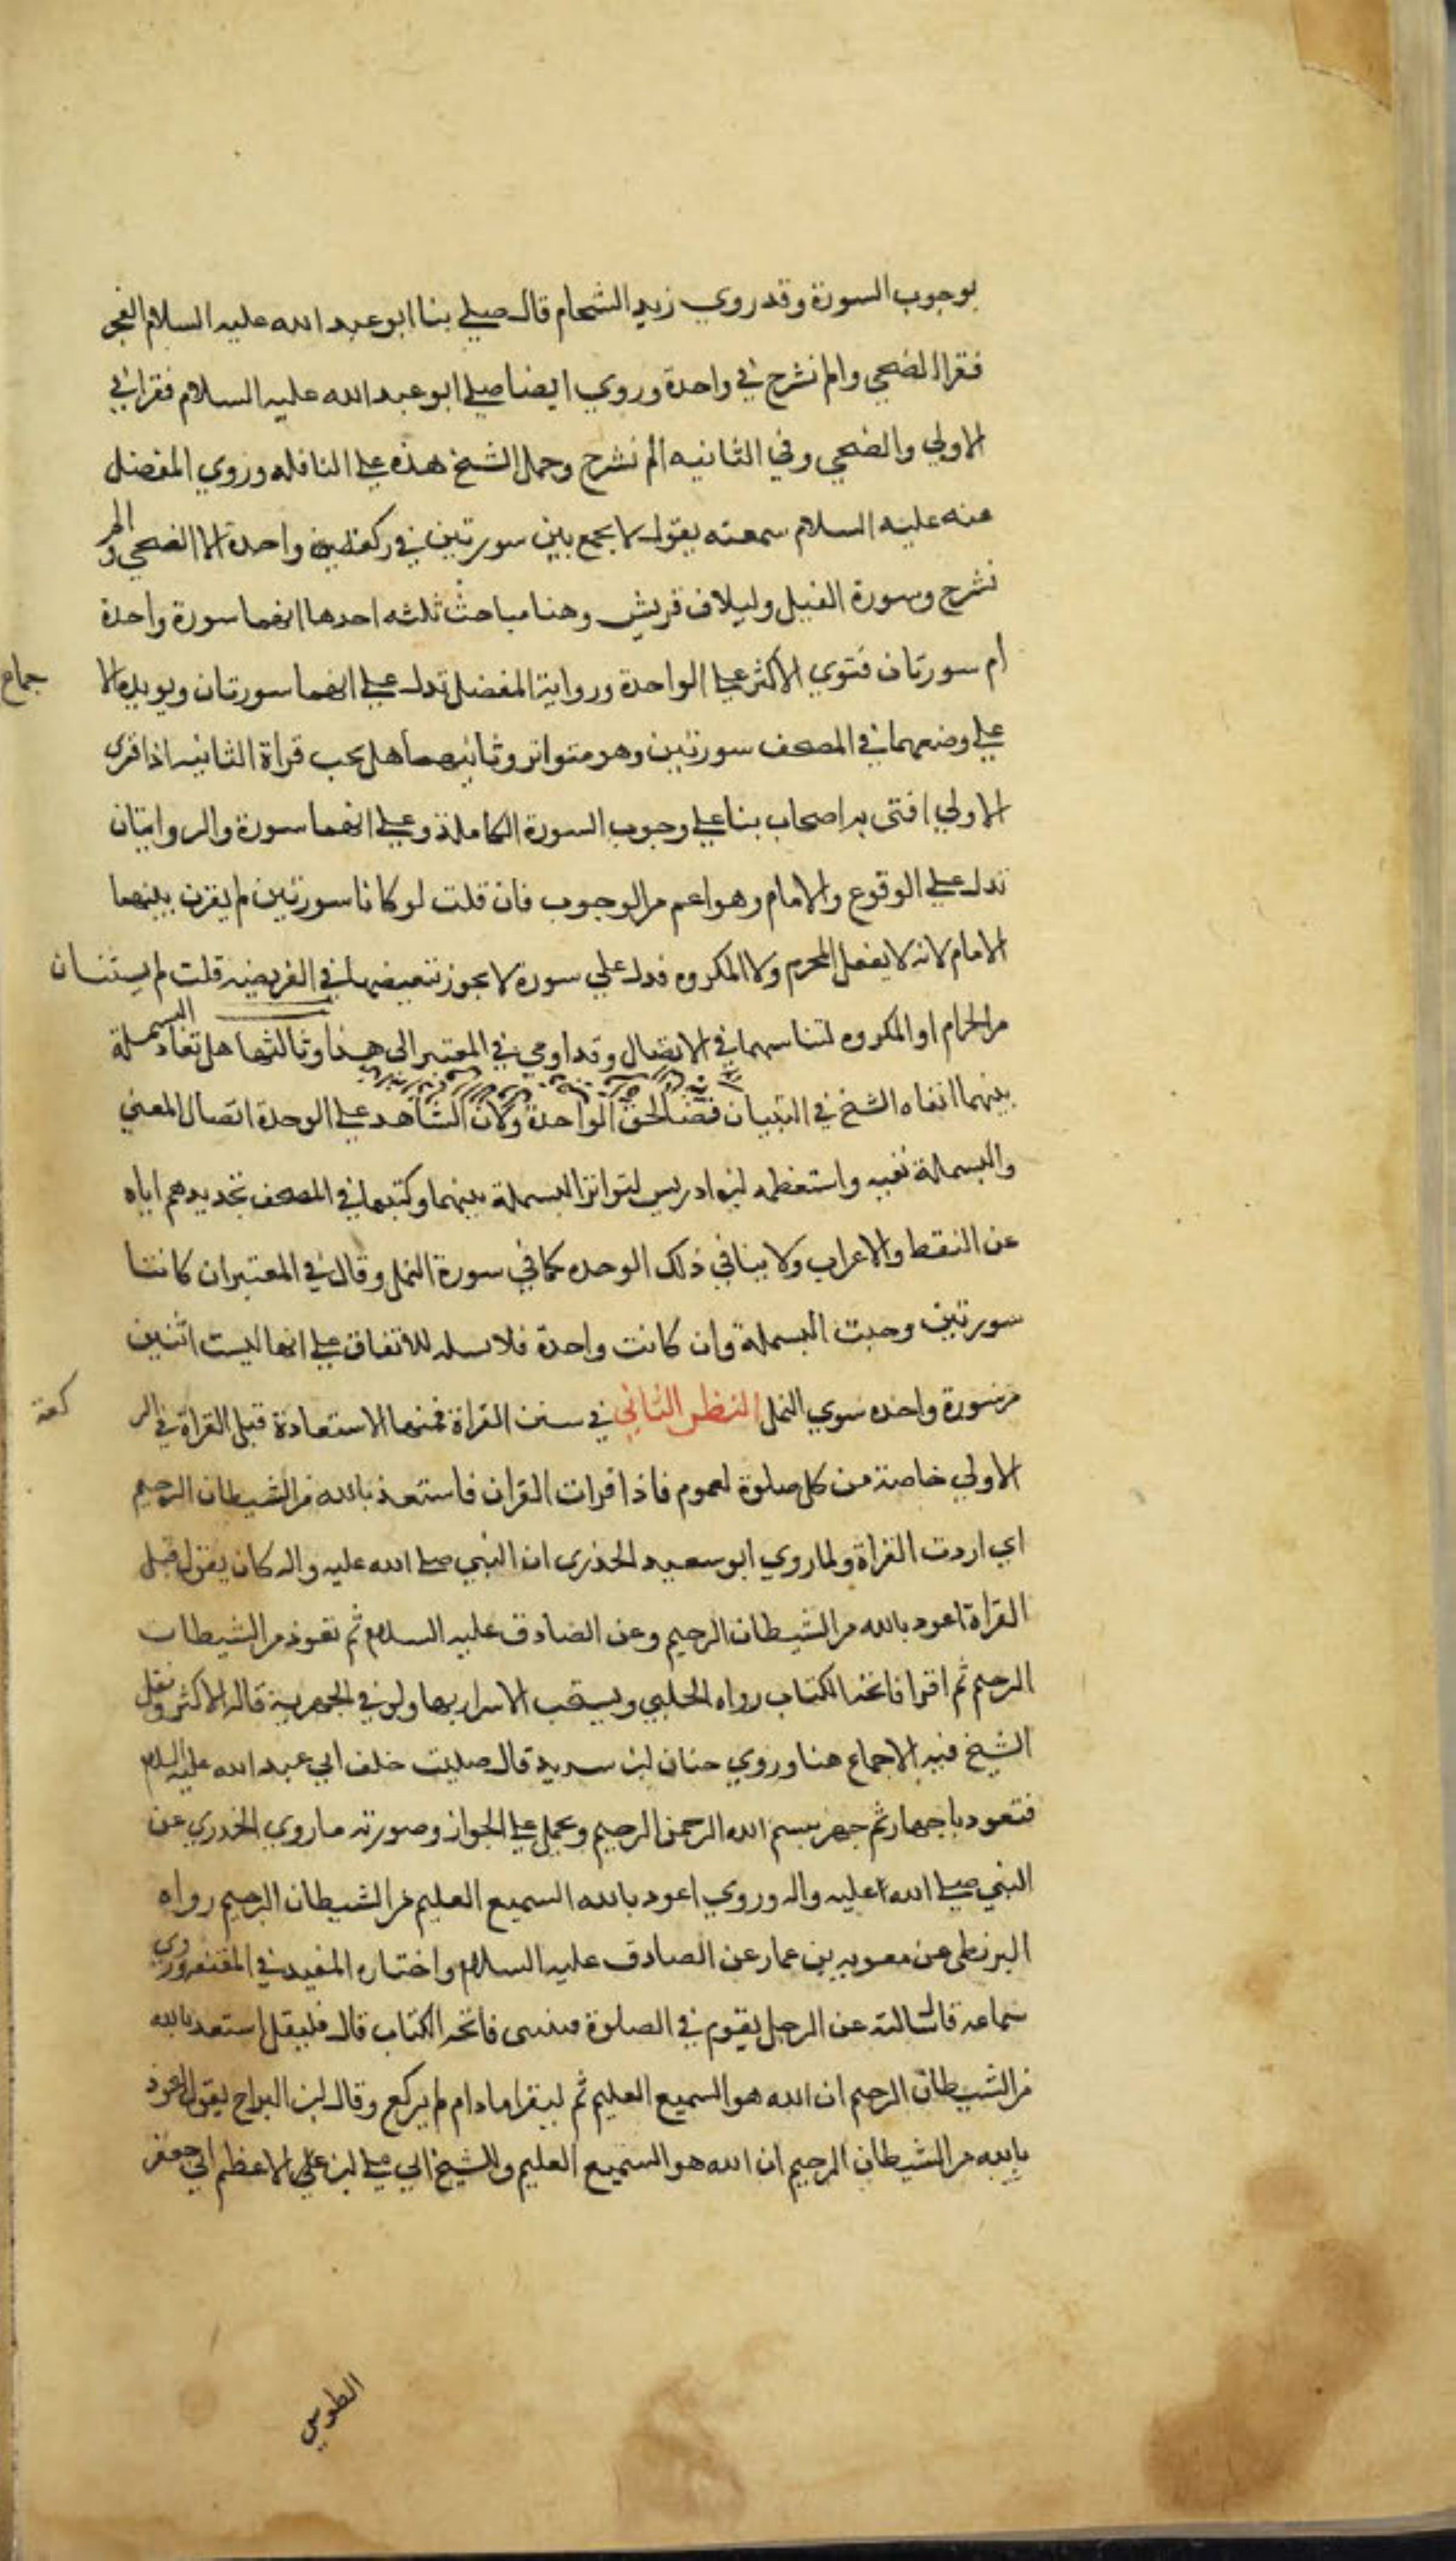 بوجوب السورة وقد روي زيد الشحام قال صلي بنا ابو عبد الله عليه السلام الفجر
فقرا الضحي والم نشرح في واحدة وروي ايضا صلي ابو عبد الله عليه السلام فقرا في
الاولي والضحي وفي الثانيه الم نشرح وحمل الشيخ هذه علي النافله وروي المفضل
عنه عليه السلام سمعته يقول لا يجمع بين سورتين في ركعتين واحدة الا الضحي والم
نشرح وسورة الفيل وليلاف قريش وهنا مباحث ثلثه احدها انهما سورة واحدة
ام سورتان فتوي الاكثر علي الواحدة ورواية المفضل تدل علي انهما سورتان ويويده الا
جماع
علي وضعهما في المصحف سورتين وهو متواتر وثانيهما هل يجب قراة الثانيه اذا قري
الاولي افتي به اصحاب بنا علي وجوب السورة الكاملة وعلي انهما سورة والروايتان
تدل علي الوقوع والامام وهو اعم من الوجوب فان قلت لو كانا سورتين لم يقرن بينهما
الامام لانه لا يفعل المحرم ولا المكروه فدل علي سورة لا يجوز تبعيضها في الفريضه قلت لم يستثنان
من الحرام او المكروه لتناسبهما في الاتصال وقد اومي في المعتبر الي هذا وثالثها هل تعاد البسملة
بينهما انفاه الشيخ في التبيان الواحدة ولان الشاهد علي الوحدة اتصال المعني
والبسملة نفيه واستعظمه ابن ادريس لتواتر البسملة بينهما وكتبها في المصحف تجديدهم اياه
عن النقط والاعراب ولا ينافي ذلك الوحده كما في سورة النمل وقال في المعتبر ان كانتا
سورتين وجبت البسملة وان كانت واحدة فلا بسمله للاتفاق علي انها ليست اثنين
من سورة واحده سوي النمل النظر الثاني في سنن القراة فمنها الاستعاذة قبل القراة في الر
كعة
الاولي خاصة من كل صلوة لعموم فاذا قرات القران فاستعذ بالله من الشيطان الرجيم
اي اردت القراة ولما روي ابو سعيد الخذري ان النبي صلي الله عليه واله كان يقول قبل
القراة اعوذ بالله من الشيطان الرجيم وعن الصادق عليه السلام ثم تعوذ من الشيطان
الرجيم ثم اقرا فاتحة الكتاب رواه الحلبي ويستحب الاسرار بها ولو في الجهرية قاله الاكثر ونقل
الشيخ فيه الاجماع هنا وروي حنان ابن سدير قال صليت خلف ابي عبد الله عليه السلام
فتعوذ باجهار ثم جهر ببسم الله الرحمن الرحيم ويحمل علي الجواز وصورته ما روي الخدري عن
النبي صلي الله عليه واله وروي اعوذ بالله السميع العليم من الشيطان الرجيم رواه
البزنطي عن معويه بن عمار عن الصادق عليه السلام واختاره المفيد في المقنعه وروي
سماعه قال سالته عن الرجل يقوم في الصلوة فينسي فاتحه الكتاب قال فليقل استعذ بالله
من الشيطان الرجيم ان الله هو السميع العليم ثم ليقراها ما دام لم يركع وقال ابن البراج يقول اعوذ
بالله من الشيطان الرجيم ان الله هو السميع العليم وللشيخ ابي علي ابن علي الاعظم ابي جعفر
الطوسي